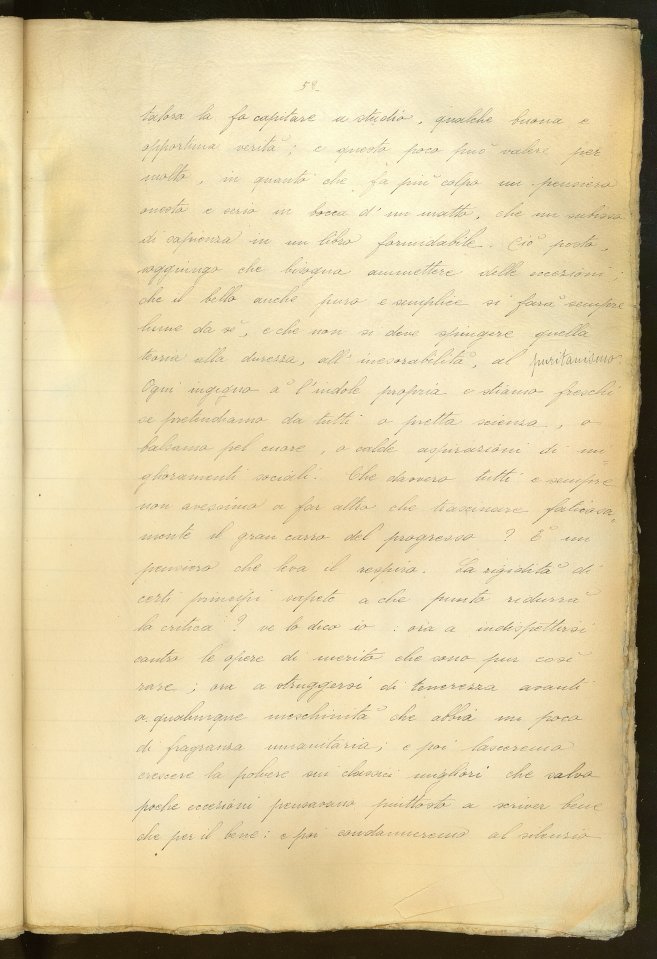 58
talora la fa capitare a studio, qualche buona e
opportuna verità; e questo poco può valere per
molto, in quanto che fa più colpo un pensiero
onesto e serio in bocca d'un matto, che un subisso
di sapienza in un libro formidabile. Ciò posto,
soggiungo che bisogna ammettere delle eccezioni:
che il bello anche puro e semplice si farà sempre
lume da sè, e che non si deve spingere quella
teoria alla durezza, all'inesorabilità, al puritanismo.
Ogni ingegno à l'indole propria e stiamo freschi
se pretendiamo da tutti o pretta scienza, o
balsamo pel cuore, o calde aspirazioni di mi-
glioramenti sociali. Che davvero tutti e sempre
non avessimo a far altro che trascinare faticosa-
mente il gran carro del progresso? È un
pensiero che leva il respiro. La rigidità di
certi principî sapete a che punto ridurrà
la critica? ve lo dico io: ora a indispettirsi
contro le opere di merito che sono pur così
rare; ora a struggersi di tenerezza avanti
a qualunque meschinità che abbia un poco
di fragranza umanitaria; e poi lasceremo
crescere la polvere sui classici migliori che salvo
poche eccezioni pensavano piuttosto a scriver bene
che per il bene: e poi condanneremo al silenzio